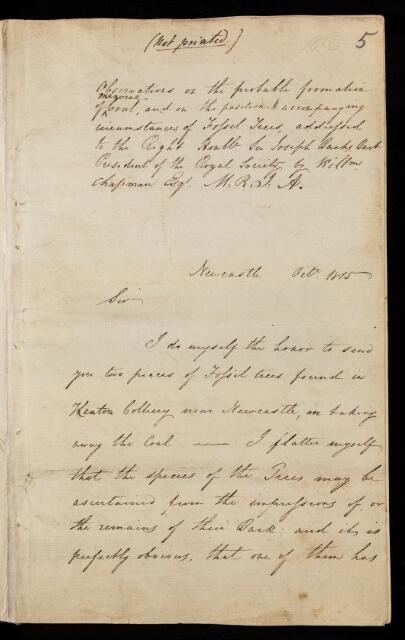 (Not printed)
5
Observations on the probable formation
mineral
of Coal, and on the position & accompanying
circumstances of Fossil Trees, addressed
to the Right Honble Sir Joseph Banks Bart
President of the Royal Society, by Willm
Chapman Esqr. M. R. I. A.
Newcastle Octr. 1815
Sir
I do myself the honor to send
you two pieces of Fossil trees found in
Kenton Colliery near Newcastle, in taking
away the Coal — I flatter myself
that the species of the Trees may be
ascertained from the impressions of, or
the remains of their Bark: and it is
perfectly obvious, that one of them has